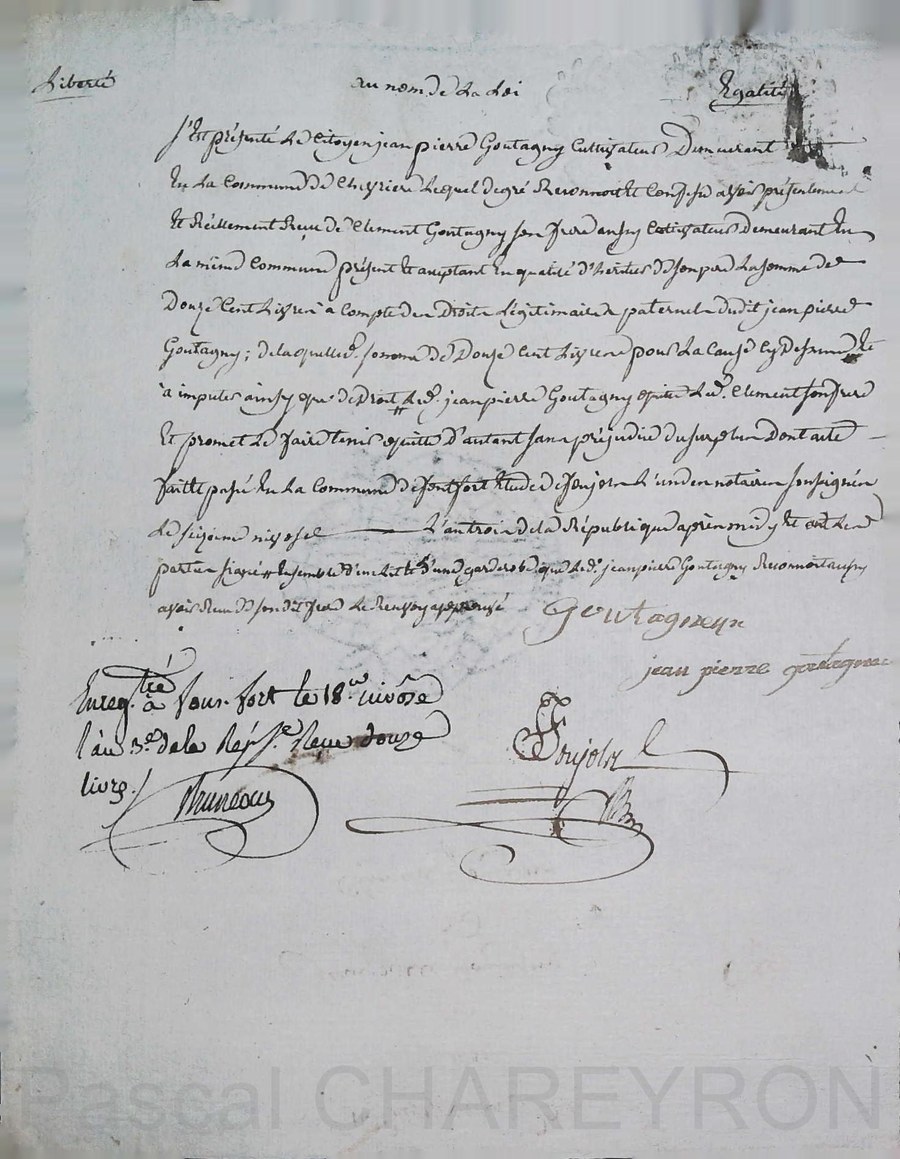 Liberté au nom de La Loi Egalité
S'est présenté Le Citoyen jean pierre Goutagny Cultivateur Demeurant
En La Commune de Chevriere Lequel de gré Reconnoit et Confesse avoir présentement
Et Réellement Reçu de Clement Goutagny son frere aussy Cultivateur Demeurant En
La même Commune présent et acceptant En qualité d'heritier de son pere La somme de
Douze Cent Livres à Compte des Droits Légitimaires paternels dudit jean pierre
Goutagny; de laquelle somme de Douze Cent Livres pour La Cause Cy Dessus et
à imputer ainsy que de Droit Led. jean pierre Goutagny quitte Led. Clement son frere
Et promet Le faire tenir quitte d'autant sans préjudice du surplus Dont acte
faitte passé En La Commune de fontfort Etude de Ponjon L'un des notaires soussignés
Le seizieme nivose L'an trois de la République après midy Et ont Les
parties signé Ensemble d'un Lit et d'une garderobe que Led. jean pierre Goutagny Reconnoit aussy
avoir Reçu de son dit frere Le Renvoy approuvé
Goutagneux
jean pierre goutagneu
Enreg.tré à fonr. fort le 18.e nivôse
l'an 3.e de la Rep. f.e Reçu douze
livres/
Bruneau